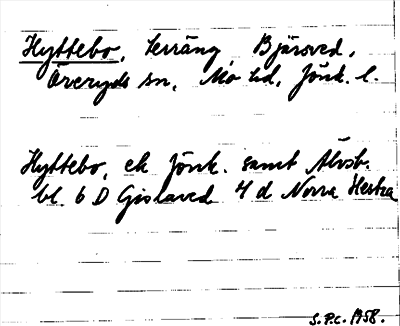 Hyttebo, terräng Bjärsved,
Öreryds sn, Mo hd, Jönk. l.
Hyttebo, ek Jönk. samt Älvsb.
bl. 6 D Gislaved 4 d Norra Hestra
S.P.C. 1958.